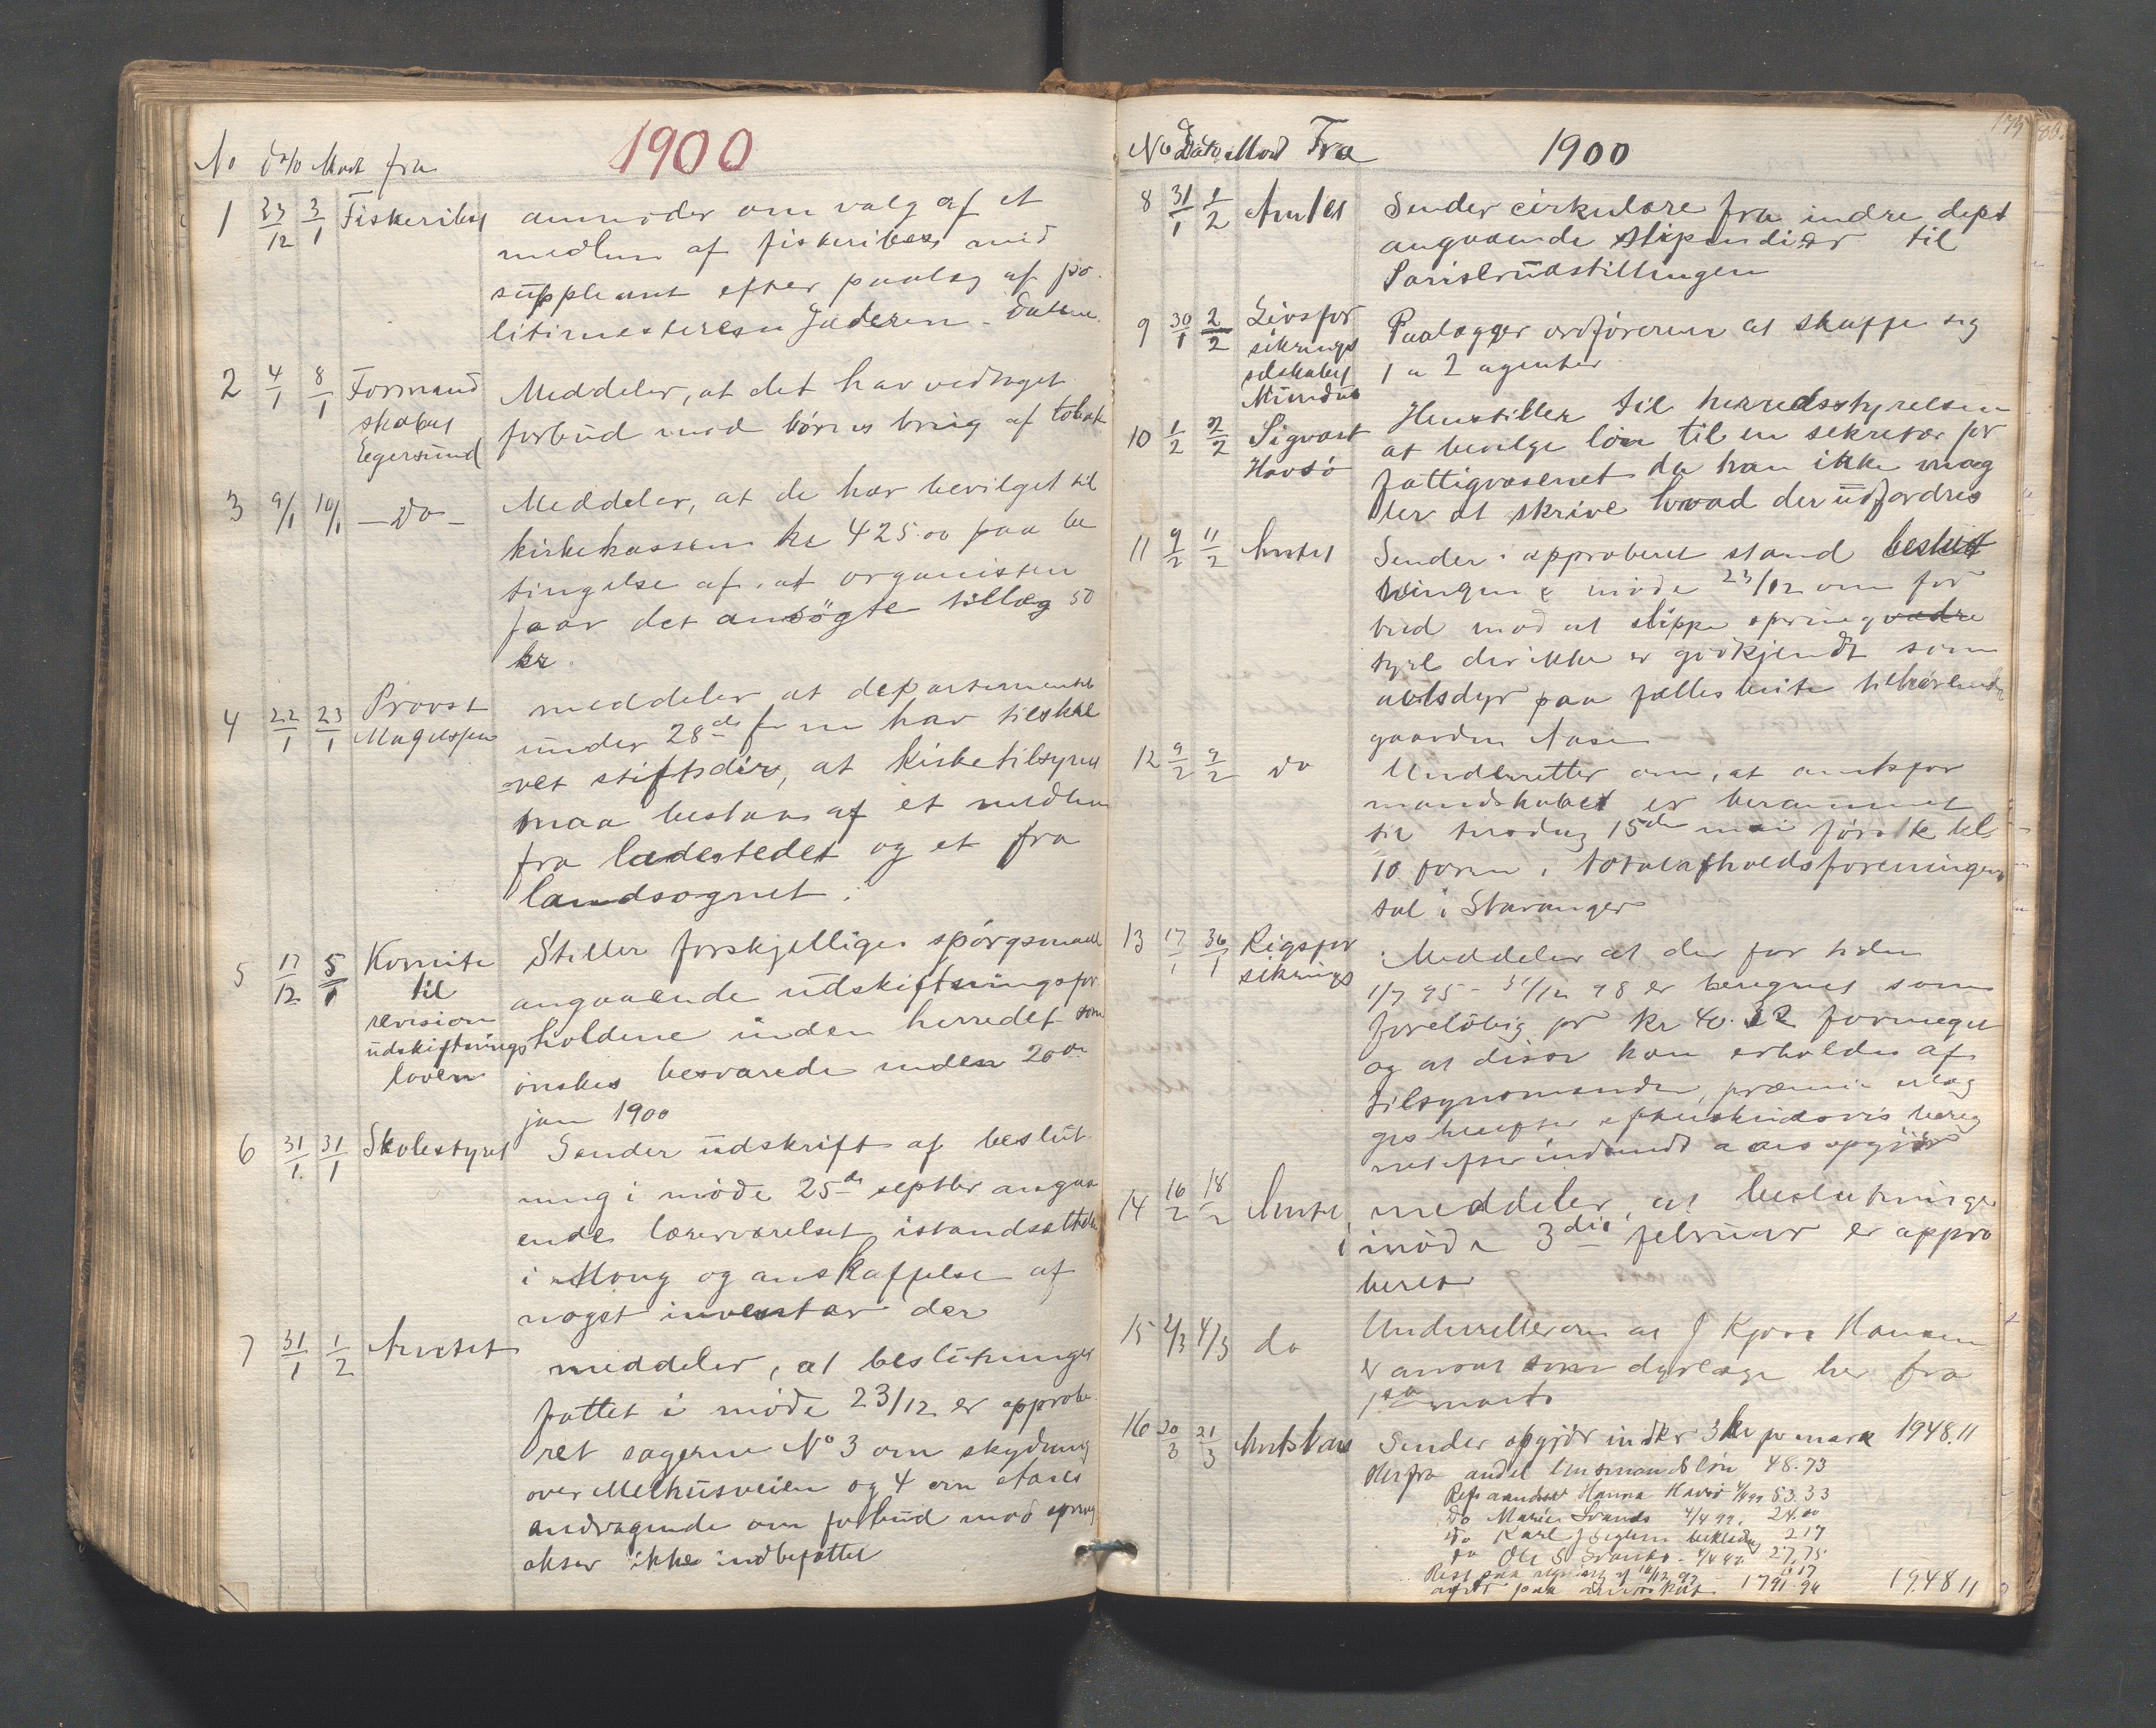 No dato Modt fra 1900
1 23/12 3/1 Fiskeribest anmoder om valg af et
medlem af fiskeribest med
suppleant efter paalæg af po
litimesteren Jæderen - Dalene
2 4/1 8/1 Formand Meddeler, at det har vedtaget
skabet forbud mod börns brug af tobak
Egersund
3 9/1 10/1 - Do - Meddeler, at de har bevilget til
kirkekassen kr 425.00 paa be
tingelse af at organisten
faar det ansögte tillæg 50
kr.
4 22/1 23/1 Provst meddeler at departementet
Magelssen under 28de f m har tilskre
vet stiftsdir, at kirketilsynet
maa bestaa af et medlem
fra ladestedet og et fra
landsognet.
5 17/12 5/1 Komite Stiller forskjellige spörgsmaal
til angaaende udskiftningsfor
revision holdene inden herredet som
udskiftnings önskes besvarede inden 20de
loven jan 1900
6 31/1 31/1 Skolestyret Sender udskrift af beslut
ning i möde 25de septbr angaa
ende læreværelset istandsættelse
i Mong og anskaffelse af
noget inventar der
7 31/1 1/2 Amtet meddeler, at beslutninger
fattet i möde 23/12 er approbe
ret sagerne No 3 om skydning
over Melhusveien og 4 om Aases
andragende om forbud mod spring
okser ikke indbefattet
No Dato Mod Fra 1900
8 31/1 1/2 Amtet Sender cirkulære fra indre dept
angaaende stipendier til
Pariserudstillingen
9 30/1 2/2 Livsfor Paalægger ordföreren at skaffe sig
sikrings 1 a 2 agenter
selskabet
Mundus
10 1/2 2/2 Sigvart Henstiller til herredsstyrelsen
Havsö at bevilge lön til en sekretær for
fattigvæsenet da han ikke mæg
ter at skrive hvad der udfordres
11 9/2 11/2 Amtet Sender i approberet stand beslut
ningen i möde 23/12 om for
bud mod at slippe spring
tyre der ikke er godkjendt som
avlsdyr paa fælles beite tilhörende
gaarden Aase
12 9/2 9/2 do Underretter om, at amtsfor
mandskabet er berammet
til tirsdag 15de mai förstk kl
10 form i totalafholdsforeningens
sal i Stavanger
13 17/1 30/1 Rigsfor Meddeler at der for tiden
sikrings 1/7 95 - 31/12 98 er beregnet som
forelöbig pr kr 40.32 formeget
og at disse kan erholdes af
tilsynsmanden, præmie
14 16/2 18/2 Amtet meddeler, at beslutninger
i möde 3die februar er appro
beret
15 2/3 4/3 do Underretter om at J Kjos Hansen
er ansat som dyrlæge her fra
1ste marts
16 20/3 21/3 Sender opgjör 3 kr pr mark 1948.11
Herfra andel lensmandslön 48.73
Hanna Havsö 53.33
Do Marie Svanes 24.00
Do Karl J 2.17
Do Ole S Svanes 27,75
Rest paa 17
1791.96 1948 11